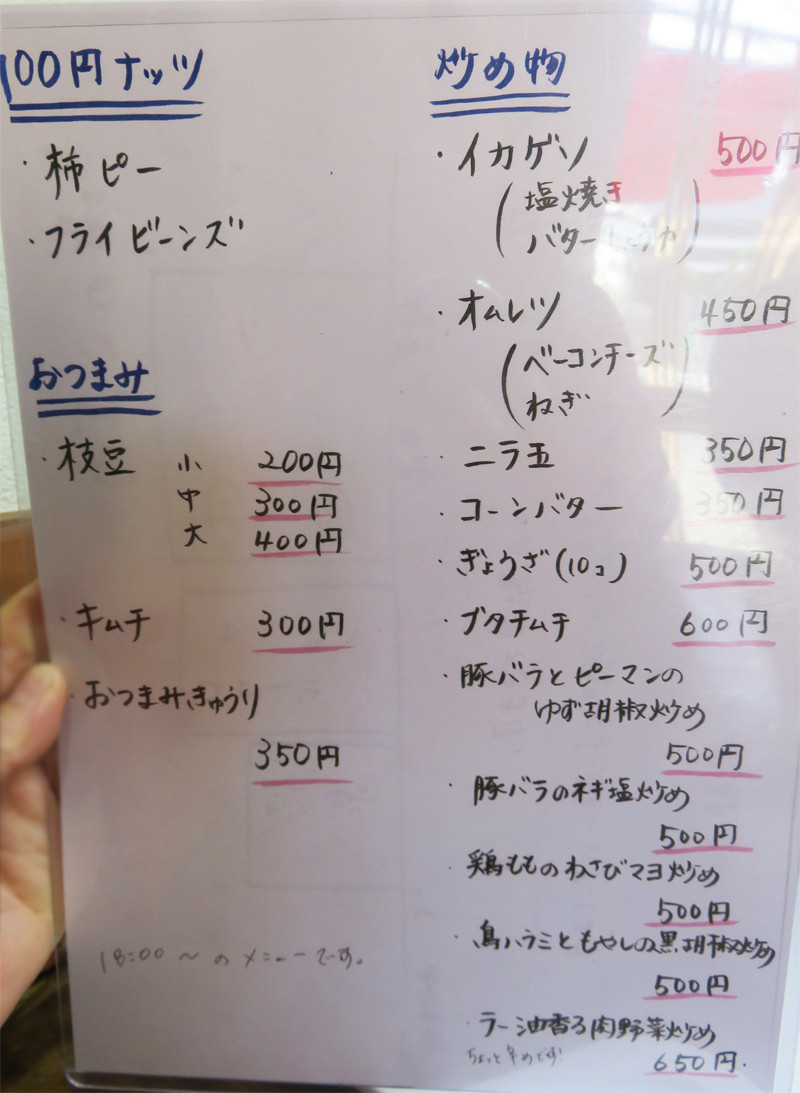 100円ナッツ
・柿ピー
・フライビーンズ
おつまみ
・枝豆 小 200円
中 300円
大 400円
・キムチ 300円
・おつまみきゅうり
350円
18:00〜のメニューです。
炒め物
・イカゲソ 500円
(塩焼き
バターしょうゆ)
・オムレツ 450円
(ベーコンチーズ
ねぎ)
・ニラ玉 350円
・コーンバター 350円
・ぎょうざ(10コ) 500円
・ブタチムチ 600円
・豚バラとピーマンの
ゆず胡椒炒め
500円
・豚バラのネギ塩炒め
500円
・鶏もものわさびマヨ炒め
500円
・鳥ハラミともやしの黒胡椒炒め
500円
・ラー油香る肉野菜炒め
ちょっと辛めです!
650円.